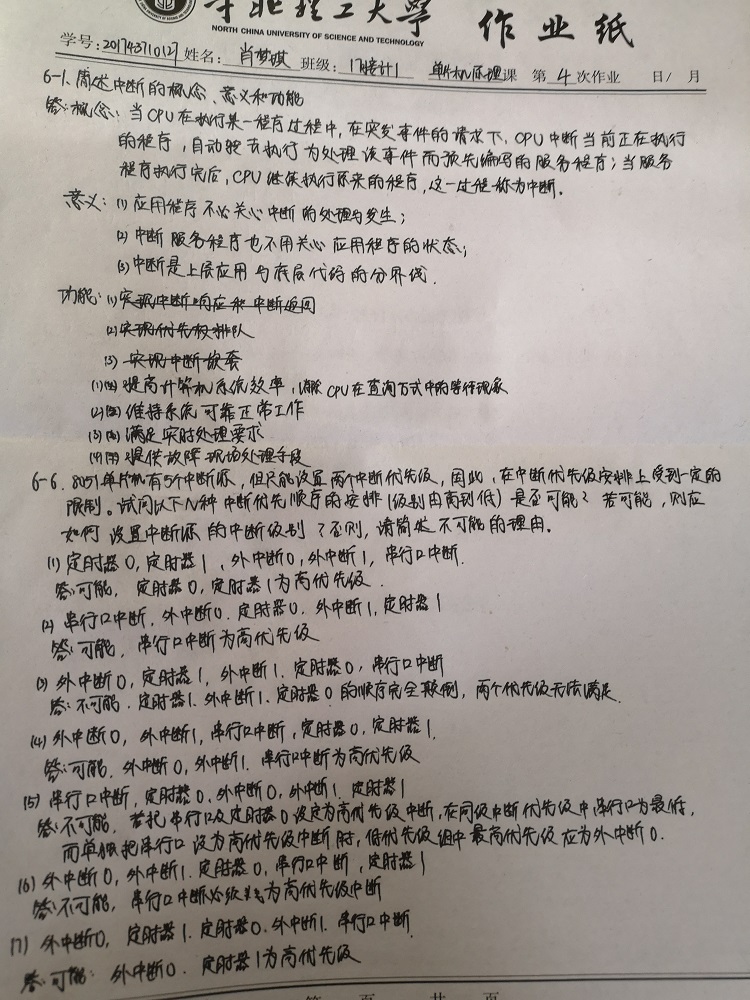 華北理工大學 作业纸
NORTH CHINA UNIVERSITY OF SCIENCE AND TECHNOLOGY
学号:201743710127 姓名: 肖梦琪 班级: 17接计1 单片机原理课 第 4 次作业 日/ 月
6-1、简述中断的概念、意义和功能
答:概念:当CPU在执行某一程序过程中,在突发事件的请求下,CPU中断当前正在执行
的程序,自动转去执行为处理该事件而预先编写的服务程序;当服务
程序执行完后,CPU继续执行原来的程序,这一过程称为中断。
意义:(1)应用程序不必关心中断的处理与发生;
(2)中断服务程序也不用关心应用程序的状态;
(3)中断是上层应用与底层代码的分界线.
功能:(1)实现中断响应和中断返回
(2)实现优先权排队
(3)实现中断嵌套
(1)提高计算机系统效率,消除CPU在查询方式中的等待现象
(2)维持系统可靠正常工作
(3)满足实时处理要求
(4)提供故障现场处理手段
6-6.8051单片机有5个中断源,但只能设置两个中断优先级,因此,在中断优先级安排上受到一定的
限制。试问以下几种中断优先顺序的安排(级别由高到低)是否可能?若可能,则应
如何设置中断源的中断级别?否则,请简述不可能的理由。
(1)定时器0,定时器1,外中断0,外中断1,串行口中断.
答:可能,定时器0,定时器1为高优先级.
(2)串行口中断,外中断0.定时器0.外中断1,定时器1
答:可能,串行口中断为高优先级
(3)外中断0,定时器1,外中断1.定时器0,串行口中断
答:不可能.定时器1.外中断1.定时器0的顺序完全颠倒,两个优先级无法满足.
(4)外中断0,外中断1,串行口中断,定时器0,定时器1.
答:可能.外中断0,外中断1.串行口中断为高优先级
(5)串行口中断,定时器0.外中断0.外中断1.定时器1
答:不可能,若把串行口及定时器0设定为高优先级中断,在同级中断优先级中串行口为最低,
而单独把串行口设为高优先级中断时,低优先级组中最高优先级应为外中断0.
(6)外中断0,外中断1.定时器0,串行口中断,定时器1
答:不可能,串行口中断必为高优先级中断
(7)外中断0,定时器1.定时器0.外中断1.串行口中断.
答:可能:外中断0.定时器1为高优先级
第 页 共 页